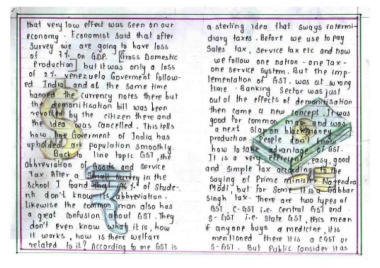 that very low effect was seen on our
economy. Economist said that after
survey we are going to have loss
of 3% on GDP. [Gross Domestic
Production] but it was only a loss
of 2%. Venezuela Goverment follow-
ed India and at the same time
banned the currency notes there but
the demonitisation bill was been
revolted by the citizen there and
the idea was cancelled. This tells
how the Goverment of India has
upholded are population smoothly.
Back to line topic GST, the
abbreviation is Goods and Service
Tax. After a survey in the
School I found that % of Stude-
nt don't know abbreviation.
likewise the common man also has
a great confusion about GST. They
don't even know what it is, how
it works, how is there welfare
related to it? According to me GST is
a sterling idea that sways intermi-
diary taxes. Before we use to pay
Sales tax, Service tax etc and now
we follow one nation - one Tax -
one service System. But the imp-
lementation of GST was at wrong
time. Banking Sector was just
out of the effects of demonitisation
then came a new concept. It was
good for common man and was
a next slap on black money
production. People don't know
how to take advantage of GST.
It is a very efficient, easy, good
and simple tax according to
saying of Prime minister Nagendra
Modi, but for Some it is Gabbar
Singh tax. There are two types of
GST. C-GST i.e. Central GST and
S-GST i.e. State GST, this mean
if anyone buys a medicine, it is
mentioned there it is a CGST or
S-GST. But Public Consider it as